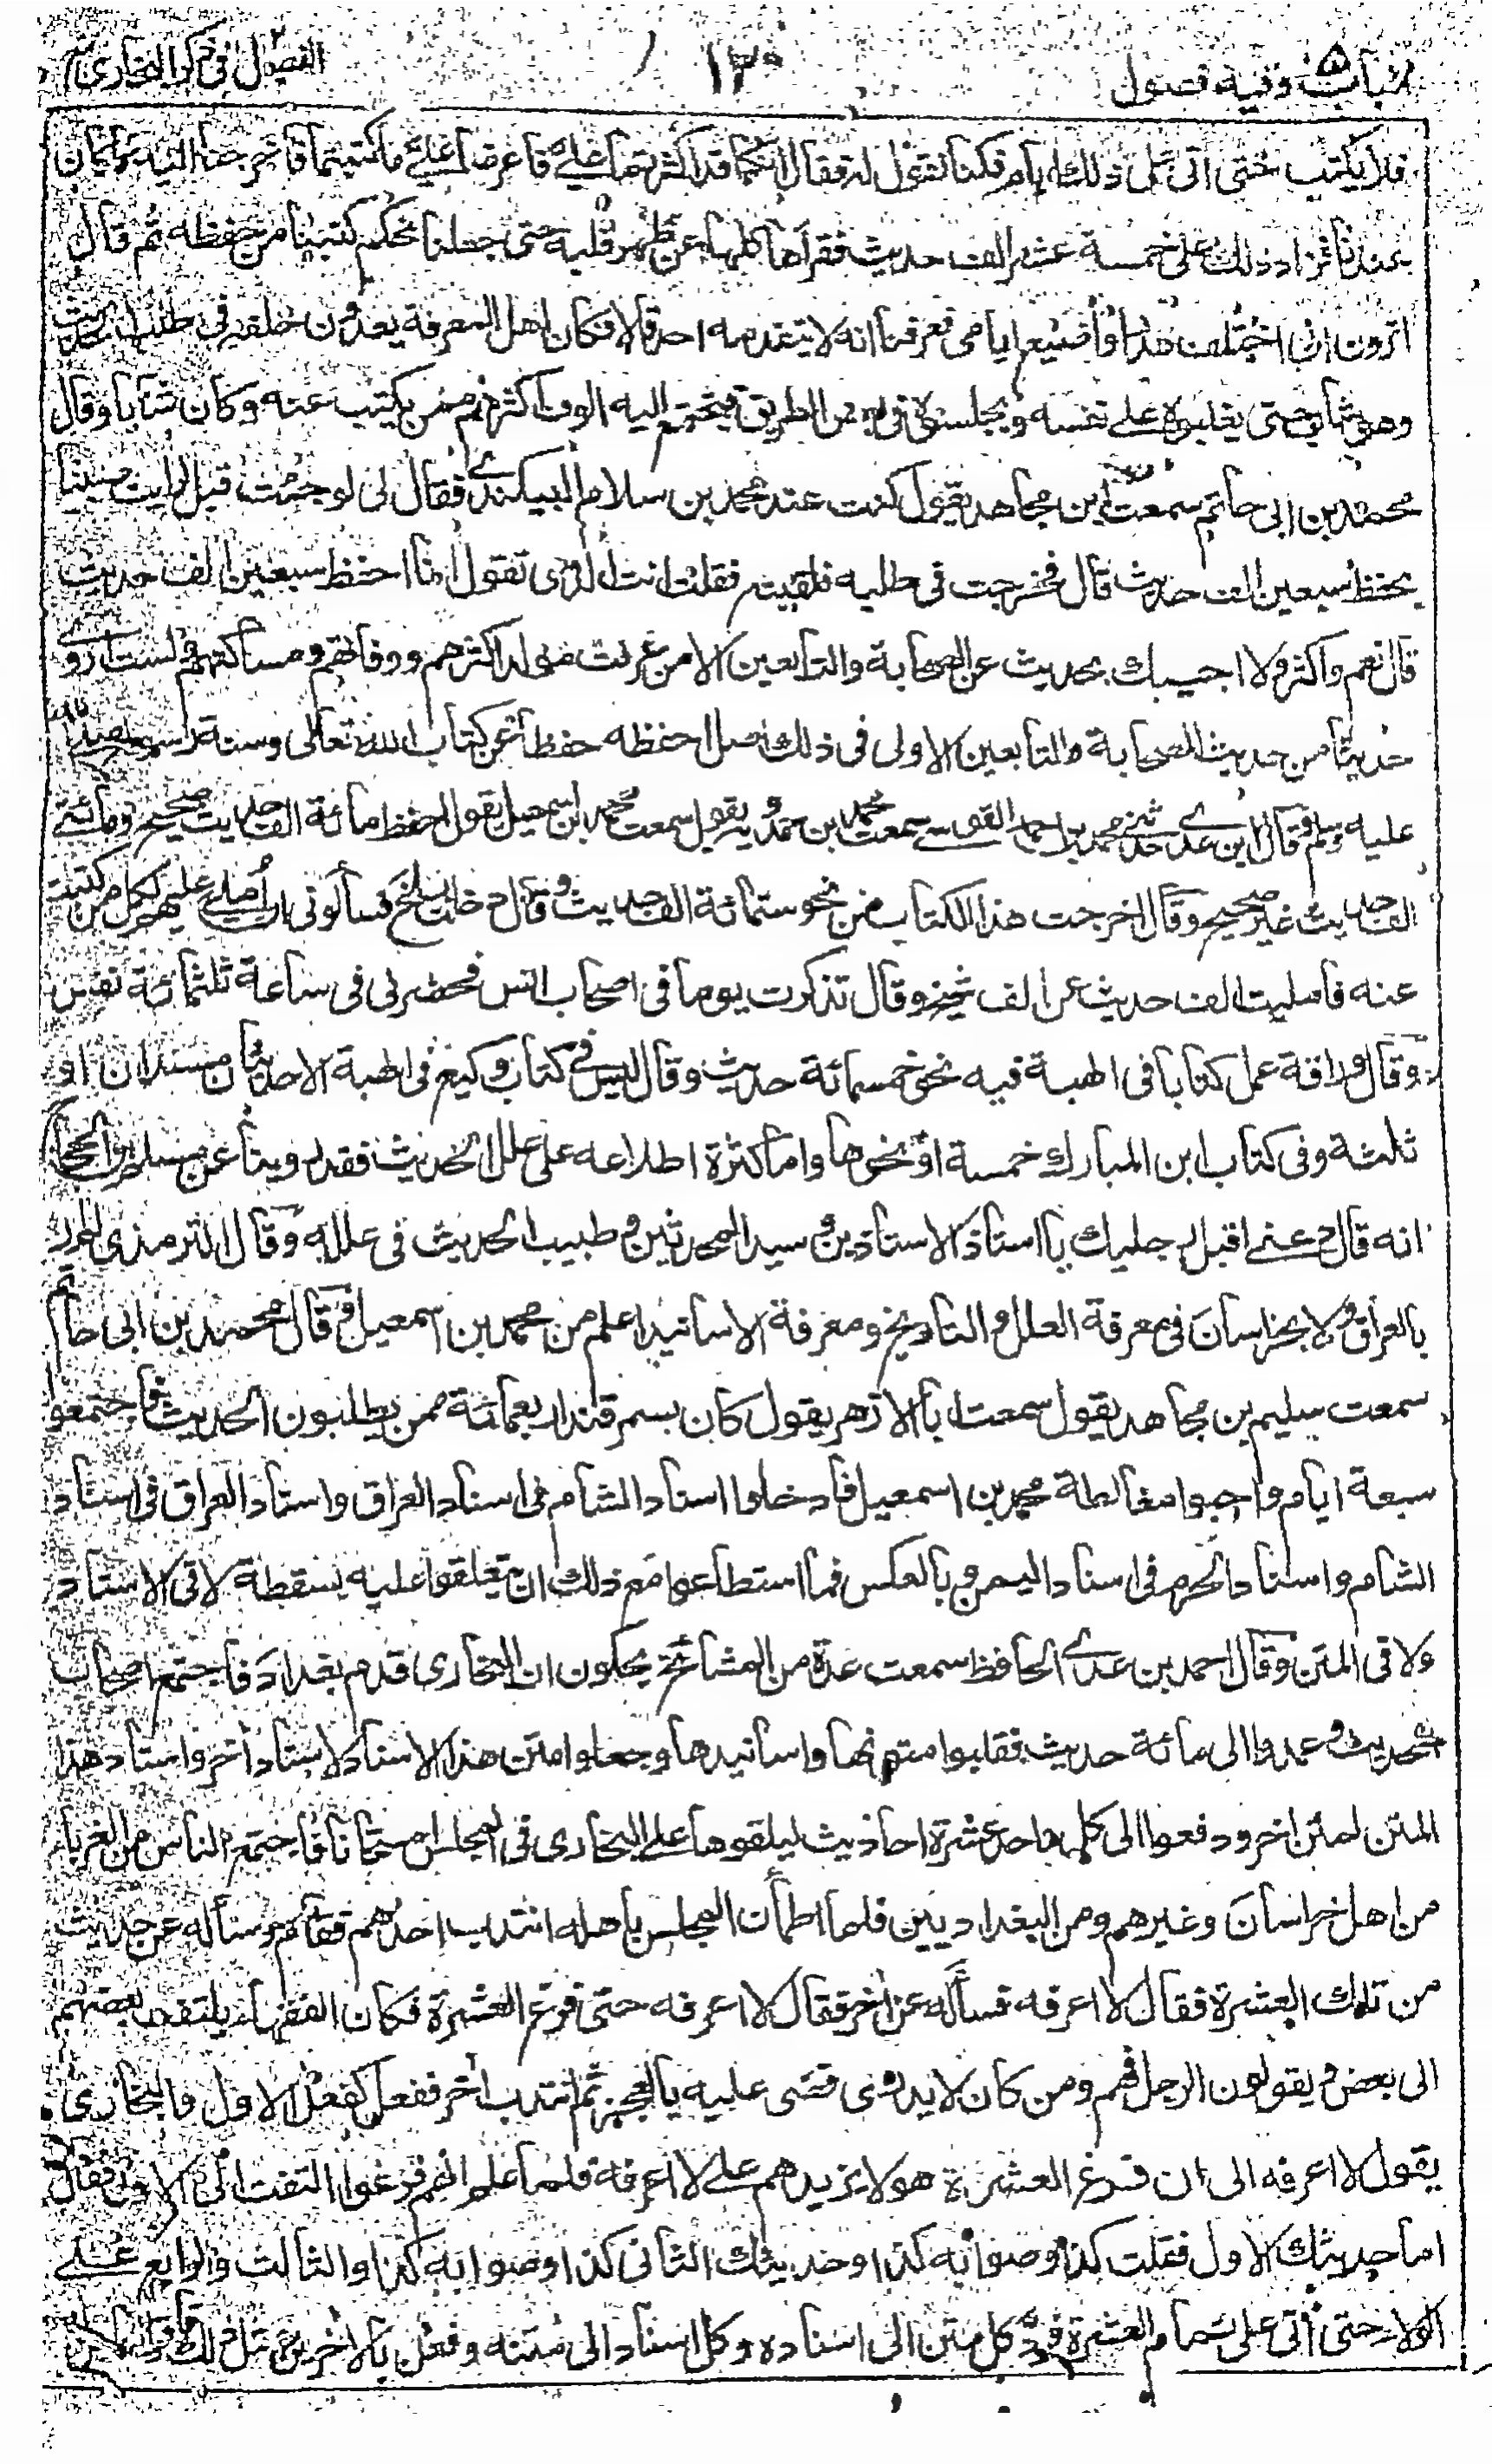 باب ٥ وفيه فصول
١٣٠
الفصل الاول في ذكر البخاري
فلا يكتب حتى اتى على ذلك ايام فكنا نقول له فقال انكما قد اكثرتما علي فاعرضا علي ما كتبتما فاخرجنا اليه ما كان
عندنا فزاد ذلك على خمسة عشر الف حديث فقرأها كلها عن ظهر قلبه حتى جعلنا نحكم كتبنا من حفظه ثم قال
اترون اني اختلف هدرا واضيع ايامي فعرفنا انه لا يتقدمه احد قالا فكان اهل المعرفة يعدون خلفه في طلب الحديث
وهو شاب حتى يغلبوه على نفسه ويجلسوه في بعض الطريق فيجتمع اليه الوف اكثرهم ممن يكتب عنه وكان شابا وقال
محمد بن ابي حاتم سمعت ابن مجاهد يقول كنت عند محمد بن سلام البيكندي فقال لي لو جئت قبل لرايت صبيا
يحفظ سبعين الف حديث قال فخرجت في طلبه فلقيته فقلت انت الذي تقول انا احفظ سبعين الف حديث
قال نعم واكثر ولا اجيبك بحديث عن الصحابة والتابعين الا من عرفت مولد اكثرهم ووفاتهم ومساكنهم ولست اروي
حديثا من حديث الصحابة والتابعين الا ولى في ذلك اصل احفظه حفظا عن كتاب الله تعالى وسنة رسوله صلى الله
عليه وسلم وقال ابن عدي حدثني محمد بن احمد القومسي سمعت محمد ابن حمدويه يقول سمعت محمد ابن اسمعيل يقول احفظ مائة الف حديث صحيح ومائتي
الف حديث غير صحيح وقال اخرجت هذا الكتاب من نحو ستمائة الف حديث وقال دخلت بلخ فسألوني ان أملي عليهم لكل من كتبت
عنه فامليت الف حديث عن الف شيخ وقال تذكرت يوما في اصحاب انس فحضر لي في ساعة ثلثمائة نفس
وقال وراقة عمل كتابا في الهبة فيه نحو خمسمائة حديث وقال ليس في كتاب وكيع في الهبة الا حديثان مسندان او
ثلثة وفي كتاب ابن المبارك خمسة او نحوها واما كثرة اطلاعه على علل الحديث فقد روينا عن مسلم بن الحجاج
انه قال دعني اقبل رجليك يا استاذ الاستاذين وسيد المحدثين وطبيب الحديث في علله وقال الترمذي لم ار
بالعراق ولا بخراسان في معرفة العلل والتاريخ ومعرفة الاسانيد اعلم من محمد بن اسمعيل وقال محمد بن ابي حاتم
سمعت سليم بن مجاهد يقول سمعت ابا الازهر يقول كان بسمرقند اربعمائة ممن يطلبون الحديث فاجتمعوا
سبعة ايام واحبوا مغالطة محمد بن اسمعيل فادخلوا اسناد الشام في اسناد العراق واسناد العراق في اسناد
الشام واسناد الحرم في اسناد اليمن وبالعكس فما استطاعوا مع ذلك ان يتعلقوا عليه بسقطة لا في الاسناد
ولا في المتن وقال احمد بن عدي الحافظ سمعت عدة من المشائخ يحكون ان البخاري قدم بغداد فاجتمع اصحاب
الحديث وعمدوا الى مائة حديث فقلبوا متونها واسانيدها وجعلوا متن هذا الاسناد لاسناد اخر واسناد هذا
المتن لمتن اخر ودفعوا الى كل واحد عشرة احاديث ليلقوها على البخاري في المجلس امتحانا فاجتمع الناس من الغرباء
من اهل خراسان وغيرهم ومن البغداديين فلما اطمأن المجلس باهله انتدب احدهم فقام وسأله عن حديث
من تلك العشرة فقال لا اعرفه فسأله عن اخر فقال لا اعرفه حتى فرغ العشرة فكان الفقهاء يلتفت بعضهم
الى بعض ويقولون الرجل فهم ومن كان لا يدري قضى عليه بالعجز ثم انتدب اخر ففعل كفعل الاول والبخاري
يقول لا اعرفه الى ان فرغ العشرة وهو لا يزيدهم على لا اعرفه فلما علم انهم فرغوا التفت الى الاول فقال
اما حديثك الاول فقلت كذا وصوابه كذا وحديثك الثاني كذا وصوابه كذا والثالث والرابع على
الولاء حتى اتى على تمام العشرة فرد كل متن الى اسناده وكل اسناد الى متنه وفعل بالاخرين مثل ذلك